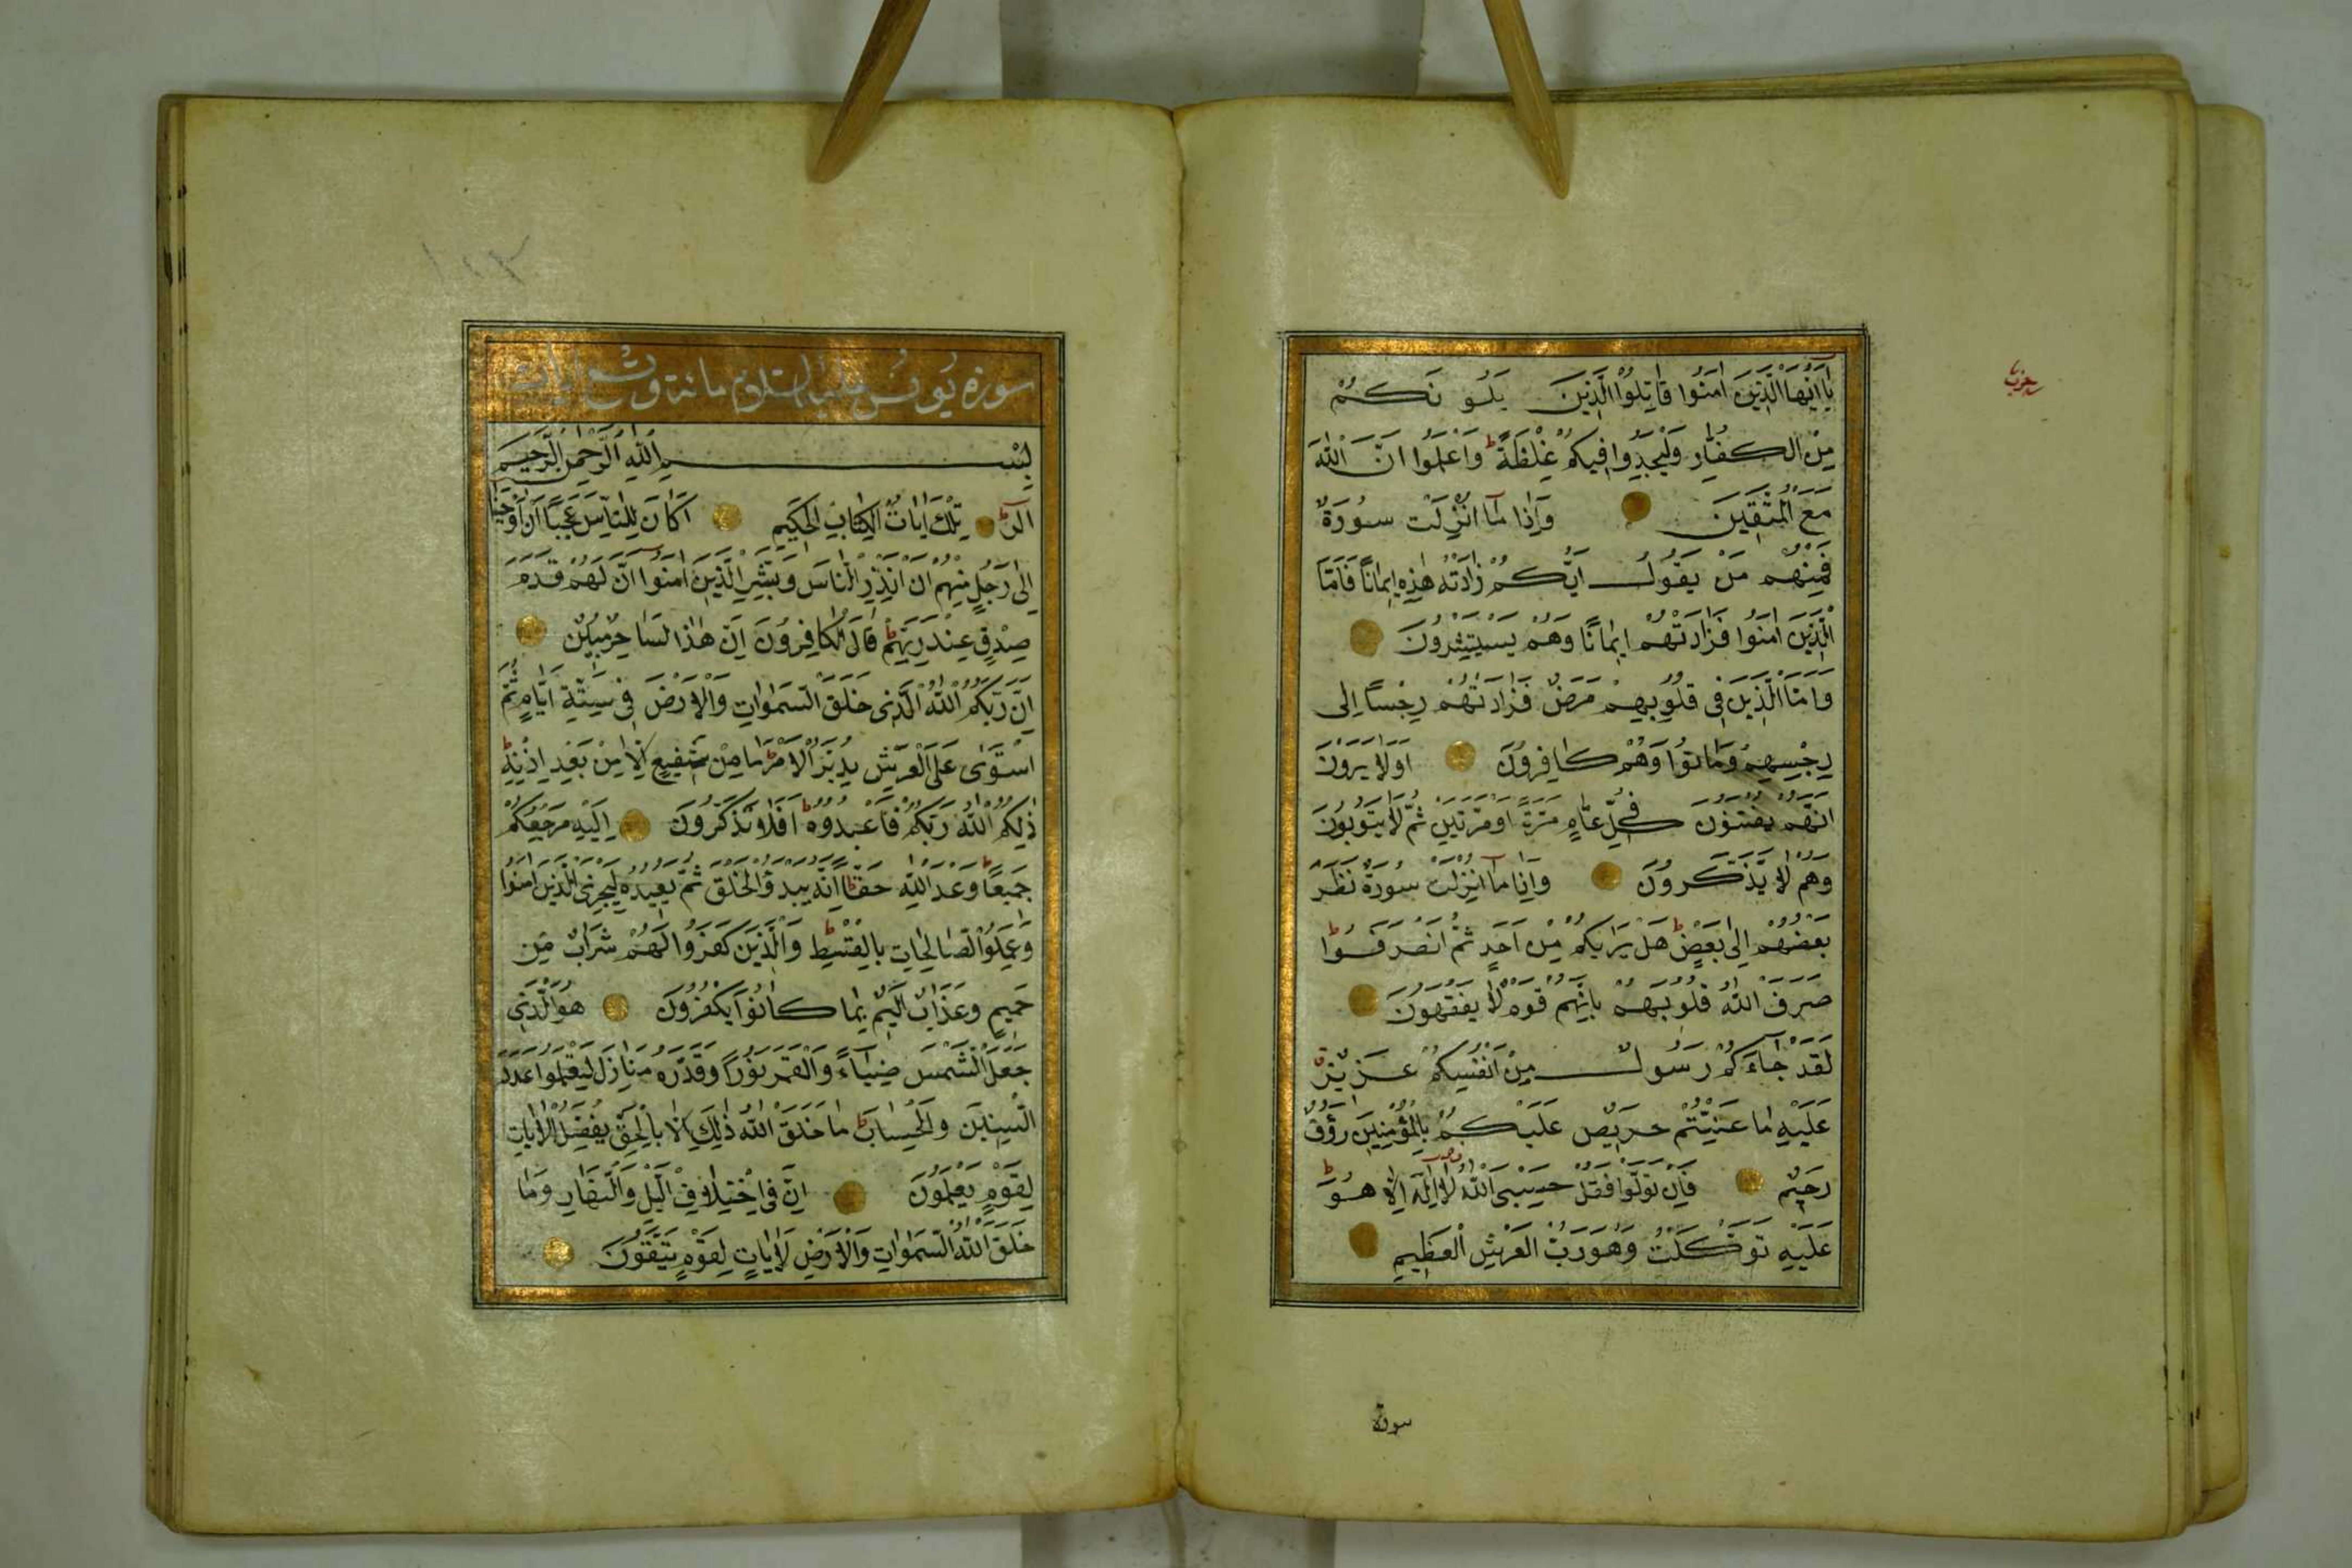 يَا أَيُّهَا الَّذِينَ اٰمَنُوا قَاتِلُوا الَّذِينَ يَلُونَكُمْ
مِنَ الْكُفَّارِ وَلْيَجِدُوا فِيكُمْ غِلْظَةً ط وَاعْلَمُوا اَنَّ اللّٰهَ
مَعَ الْمُتَّقِينَ وَاِذَا مَا اُنْزِلَتْ سُورَةٌ
فَمِنْهُمْ مَنْ يَقُولُ اَيُّكُمْ زَادَتْهُ هٰذِهِ اِيمَانًا فَاَمَّا
الَّذِينَ اٰمَنُوا فَزَادَتْهُمْ اِيمَانًا وَهُمْ يَسْتَبْشِرُونَ
وَاَمَّا الَّذِينَ فِي قُلُوبِهِمْ مَرَضٌ فَزَادَتْهُمْ رِجْسًا اِلٰى
رِجْسِهِمْ وَمَاتُوا وَهُمْ كَافِرُونَ اَوَلَا يَرَوْنَ
اَنَّهُمْ يُفْتَنُونَ فِي كُلِّ عَامٍ مَرَّةً اَوْ مَرَّتَيْنِ ثُمَّ لَا يَتُوبُونَ
وَلَا هُمْ يَذَّكَّرُونَ وَاِذَا مَا اُنْزِلَتْ سُورَةٌ نَظَرَ
بَعْضُهُمْ اِلٰى بَعْضٍ ط هَلْ يَرٰيكُمْ مِنْ اَحَدٍ ثُمَّ انْصَرَفُوا ط
صَرَفَ اللّٰهُ قُلُوبَهُمْ بِاَنَّهُمْ قَوْمٌ لَا يَفْقَهُونَ
لَقَدْ جَاءَكُمْ رَسُولٌ مِنْ اَنْفُسِكُمْ عَزِيزٌ
عَلَيْهِ مَا عَنِتُّمْ حَرِيصٌ عَلَيْكُمْ بِالْمُؤْمِنِينَ رَؤُفٌ
رَحِيمٌ فَاِنْ تَوَلَّوْا فَقُلْ حَسْبِيَ اللّٰهُ لَا اِلٰهَ اِلَّا هُوَ ط
عَلَيْهِ تَوَكَّلْتُ وَهُوَ رَبُّ الْعَرْشِ الْعَظِيمِ
سورة
١٢٣
سورة يونس عليه السلام مائة وتسع ايات
بِسْمِ اللّٰهِ الرَّحْمٰنِ الرَّحِيمِ
الٓرٰ تِلْكَ اٰيَاتُ الْكِتَابِ الْحَكِيمِ اَكَانَ لِلنَّاسِ عَجَبًا اَنْ اَوْحَيْنَا
اِلٰى رَجُلٍ مِنْهُمْ اَنْ اَنْذِرِ النَّاسَ وَبَشِّرِ الَّذِينَ اٰمَنُوا اَنَّ لَهُمْ قَدَمَ
صِدْقٍ عِنْدَ رَبِّهِمْ ط قَالَ الْكَافِرُونَ اِنَّ هٰذَا لَسَاحِرٌ مُبِينٌ
اِنَّ رَبَّكُمُ اللّٰهُ الَّذِي خَلَقَ السَّمٰوَاتِ وَالْاَرْضَ فِي سِتَّةِ اَيَّامٍ ثُمَّ
اسْتَوٰى عَلَى الْعَرْشِ يُدَبِّرُ الْاَمْرَ ط مَا مِنْ شَفِيعٍ اِلَّا مِنْ بَعْدِ اِذْنِهِ ط
ذٰلِكُمُ اللّٰهُ رَبُّكُمْ فَاعْبُدُوهُ ط اَفَلَا تَذَكَّرُونَ اِلَيْهِ مَرْجِعُكُمْ
جَمِيعًا ط وَعْدَ اللّٰهِ حَقًّا ط اِنَّهُ يَبْدَؤُا الْخَلْقَ ثُمَّ يُعِيدُهُ لِيَجْزِيَ الَّذِينَ اٰمَنُوا
وَعَمِلُوا الصَّالِحَاتِ بِالْقِسْطِ ط وَالَّذِينَ كَفَرُوا لَهُمْ شَرَابٌ مِنْ
حَمِيمٍ وَعَذَابٌ اَلِيمٌ بِمَا كَانُوا يَكْفُرُونَ هُوَ الَّذِي
جَعَلَ الشَّمْسَ ضِيَاءً وَالْقَمَرَ نُورًا وَقَدَّرَهُ مَنَازِلَ لِتَعْلَمُوا عَدَدَ
السِّنِينَ وَالْحِسَابَ ط مَا خَلَقَ اللّٰهُ ذٰلِكَ اِلَّا بِالْحَقِّ يُفَصِّلُ الْاٰيَاتِ
لِقَوْمٍ يَعْلَمُونَ اِنَّ فِي اخْتِلَافِ الَّيْلِ وَالنَّهَارِ وَمَا
خَلَقَ اللّٰهُ السَّمٰوَاتِ وَالْاَرْضِ لَاٰيَاتٍ لِقَوْمٍ يَتَّقُونَ